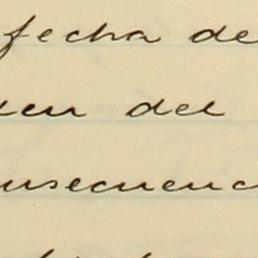 fecha de
en del
nsecuenc